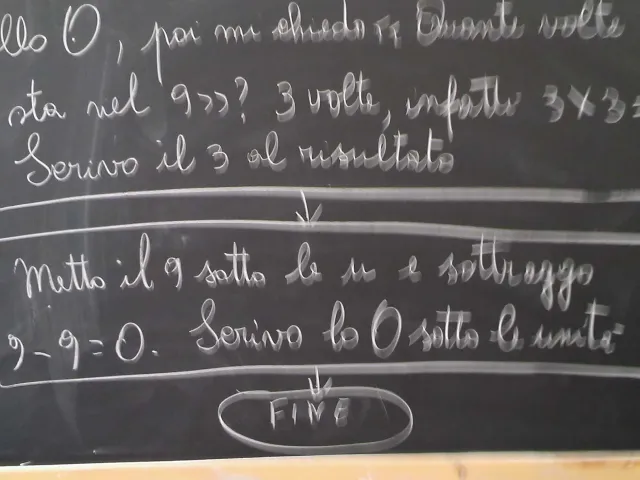 llo 0, poi mi chiedo << Quante volte
sta nel 9>>? 3 volte, infatti 3x3=
Scrivo il 3 al risultato
Metto il 9 sotto le u e sottraggo
9-9=0. Scrivo lo 0 sotto le unità
FINE